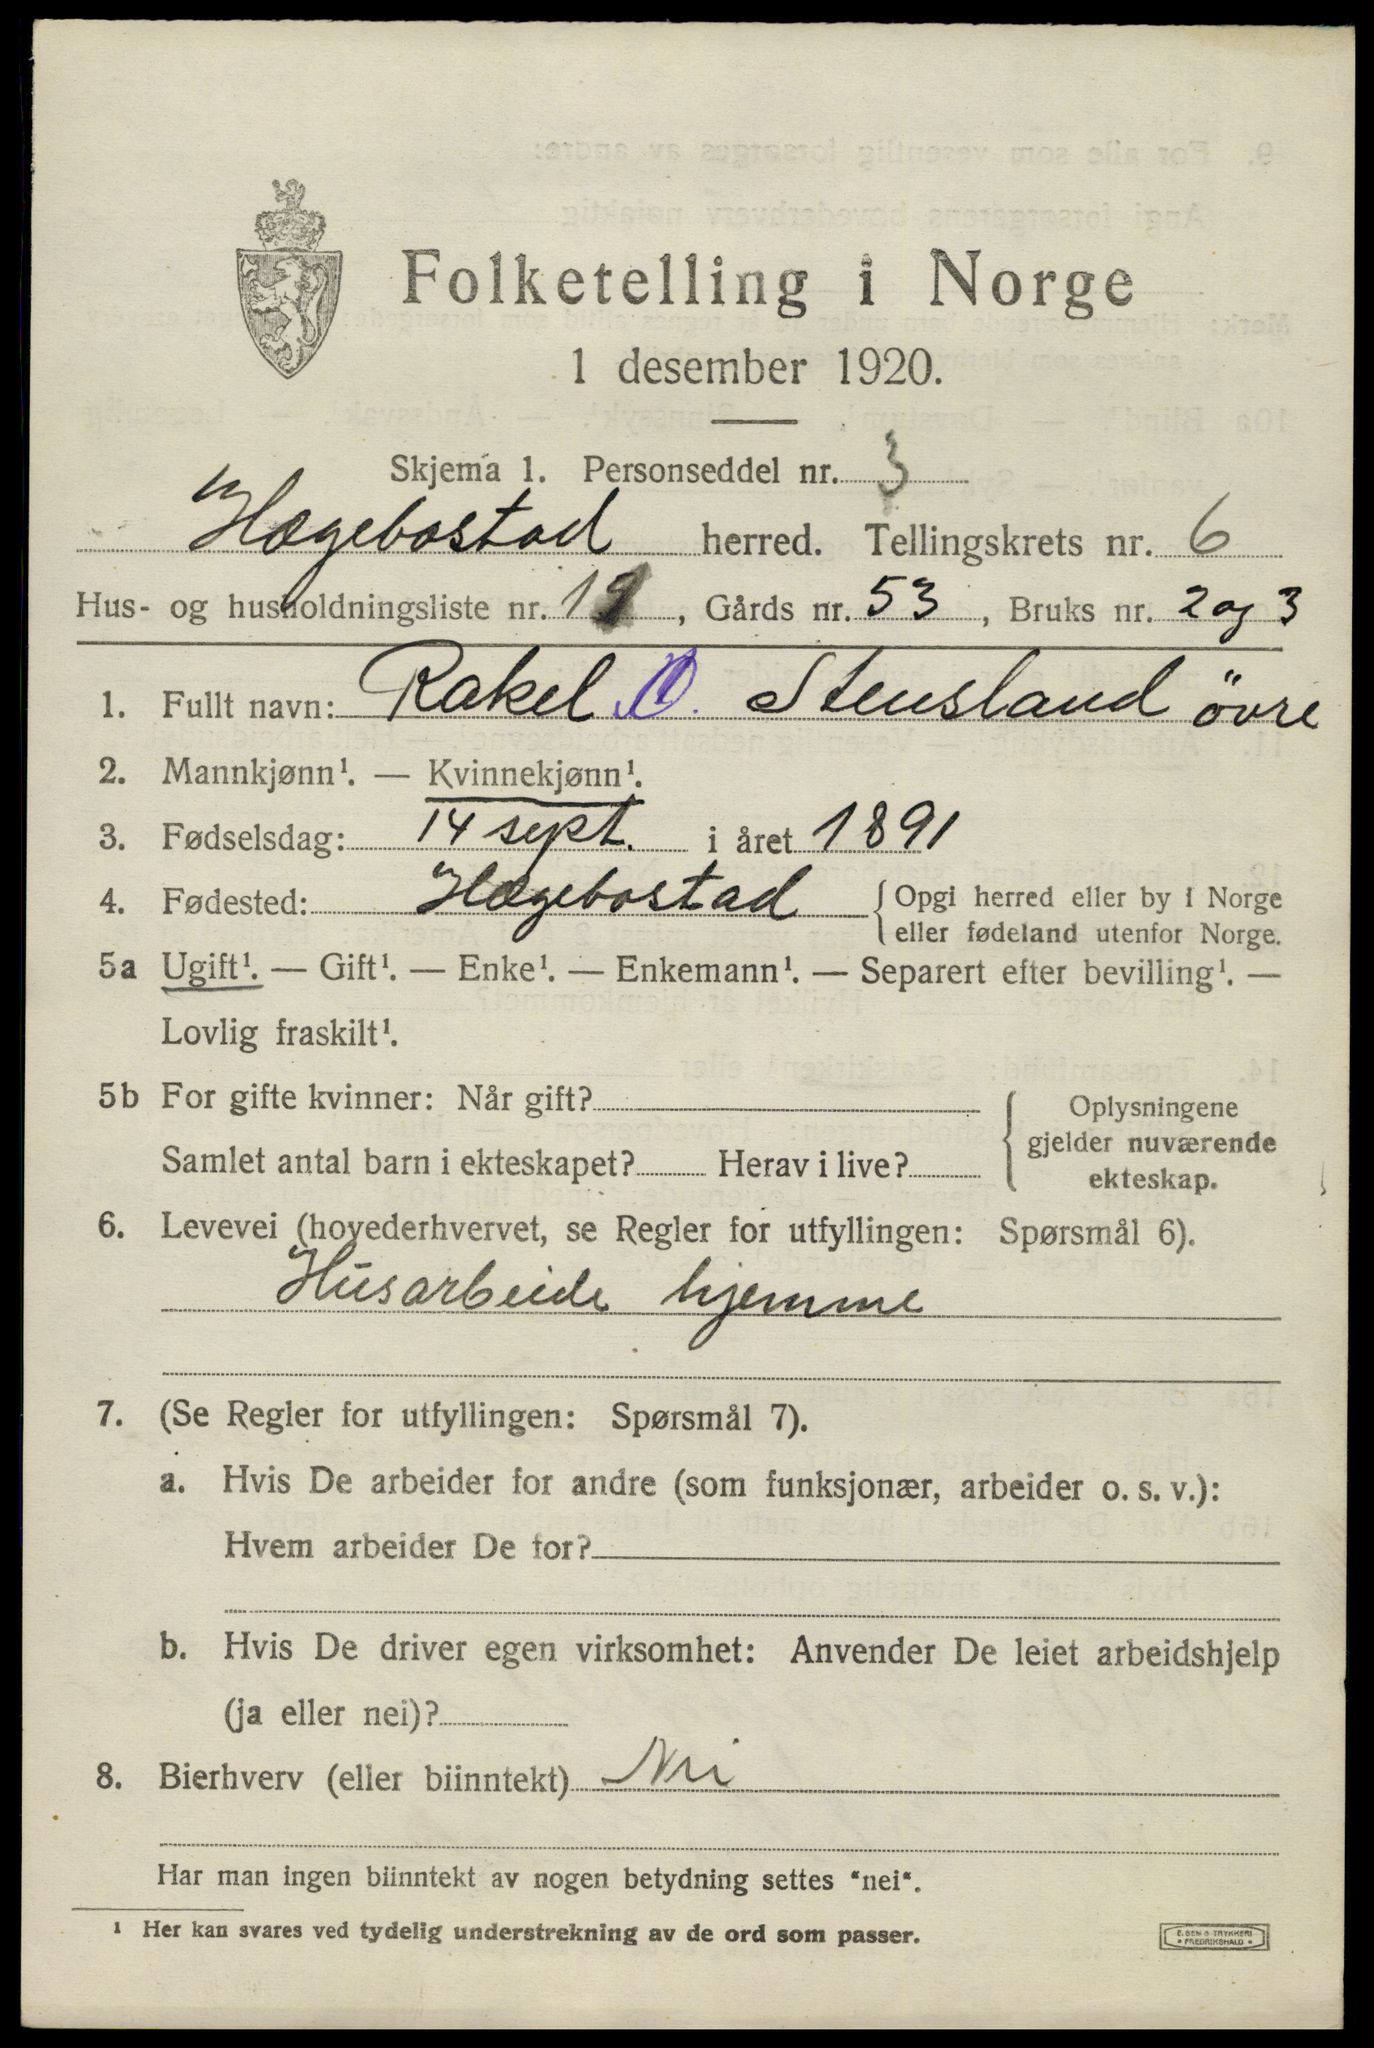 Folketelling i Norge
1 desember 1920.
Skjema 1. Personseddel nr. 3
Hægebostad herred. Tellingskrets nr. 6
Hus- og husholdningsliste nr. 1 , Gårds nr. 53 , Bruks nr. 2 og 3
1. Fullt navn: Rakel O. Stensland övre
2. Mannkjønn¹. — Kvinnekjønn¹.
3. Fødselsdag: 14 sept. i året 1891
4. Fødested: Hægebostad { Opgi herred eller by i Norge
eller fødeland utenfor Norge.
5a Ugift¹. — Gift¹. — Enke¹. — Enkemann¹. — Separert efter bevilling¹. —
Lovlig fraskilt¹.
5b For gifte kvinner: Når gift?
Samlet antal barn i ekteskapet? Herav i live?
{ Oplysningene
gjelder nuværende
ekteskap.
6. Levevei (hovederhvervet, se Regler for utfyllingen: Spørsmål 6).
Husarbeide hjemme
7. (Se Regler for utfyllingen: Spørsmål 7).
a. Hvis De arbeider for andre (som funksjonær, arbeider o. s. v.):
Hvem arbeider De for?
b. Hvis De driver egen virksomhet: Anvender De leiet arbeidshjelp
(ja eller nei)?
8. Bierhverv (eller biinntekt) Nei
Har man ingen biinntekt av nogen betydning settes "nei".
¹ Her kan svares ved tydelig understrekning av de ord som passer.
TRYKKERI
FREDRIKSHALD